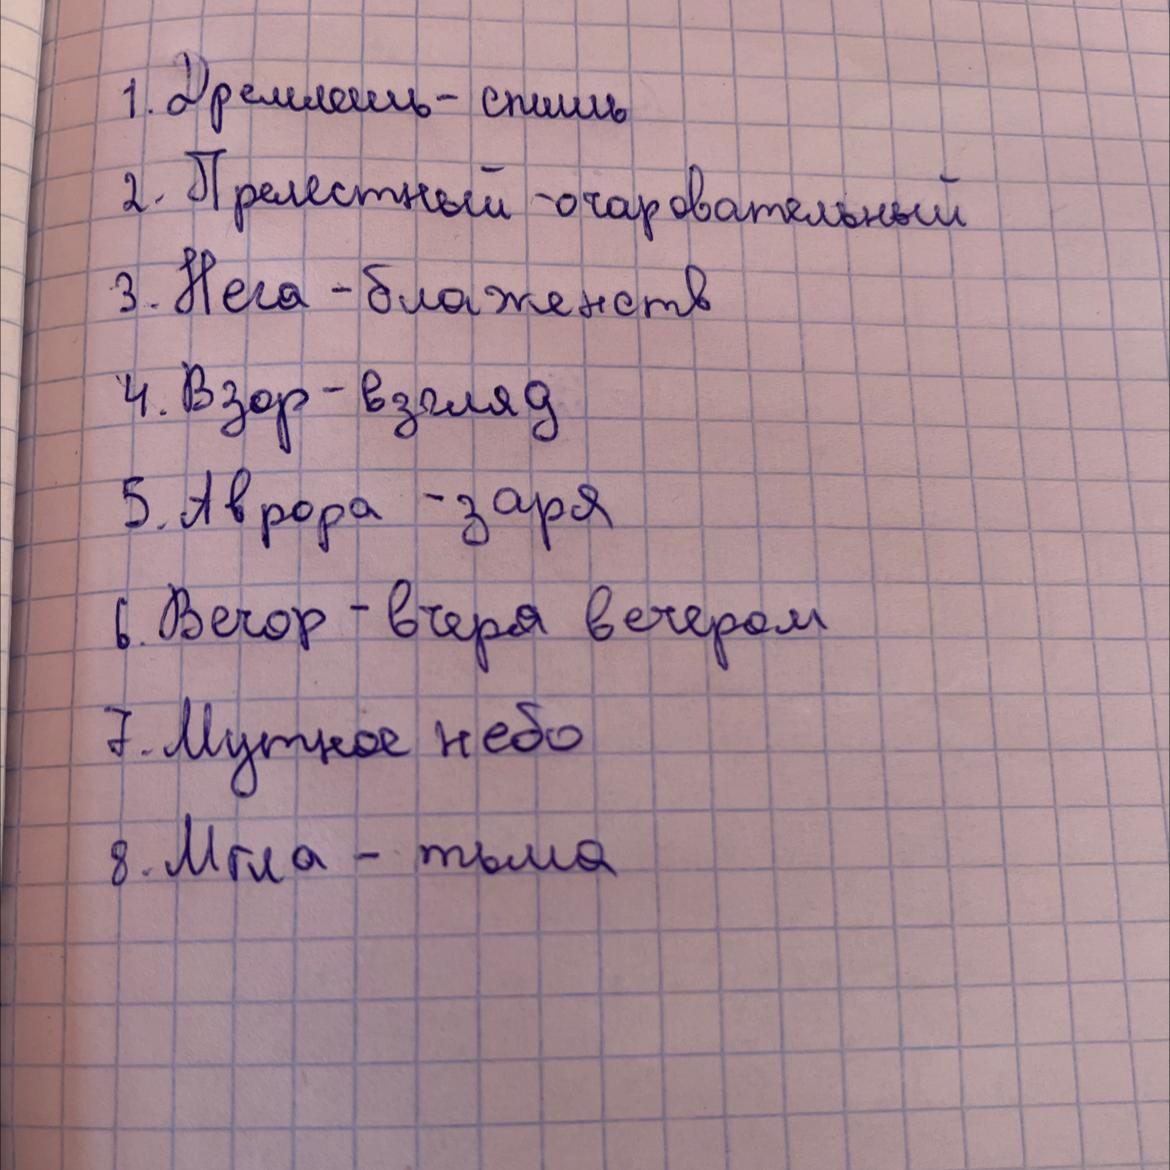 1. Дремлешь - спишь
2. Прелестный - очаровательный
3. Нега - блаженств
4. Взор - взгляд
5. Аврора - заря
6. Вечор - вчера вечером
7. Мутное небо
8. Мгла - тьма